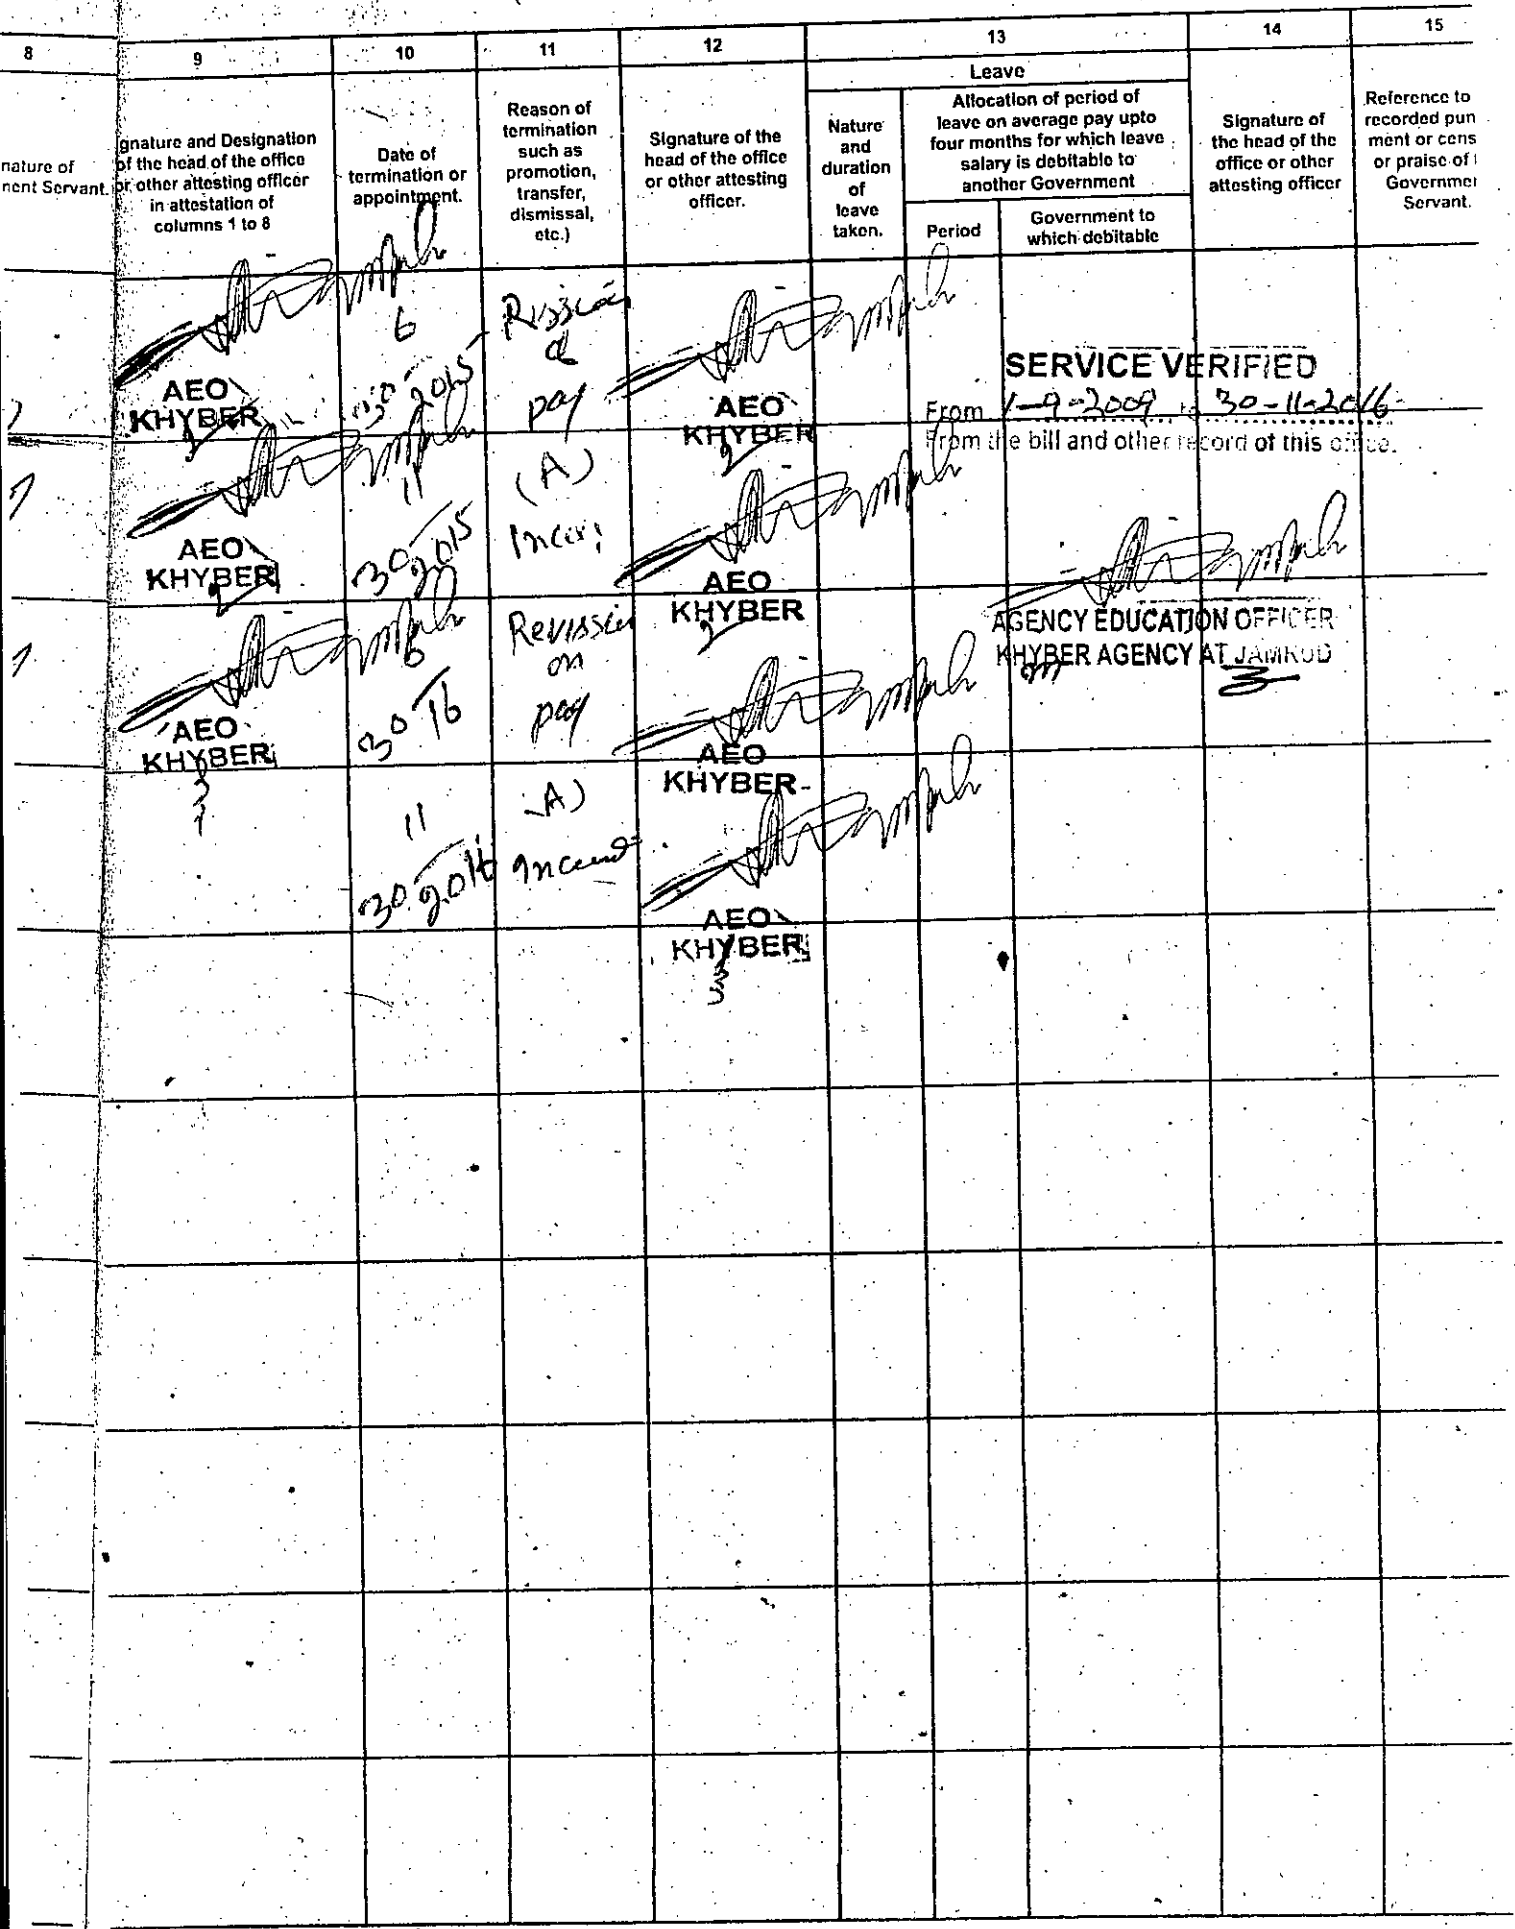 8
9
10
11
12
13
14
15
nature of
nent Servant.
gnature and Designation
of the head of the office
or other attesting officer
in attestation of
columns 1 to 8
Date of
termination or
appointment.
Reason of
termination
such as
promotion,
transfer,
dismissal,
etc.)
Signature of the
head of the office
or other attesting
officer.
Leave
Nature
and
duration
of
leave
taken.
Allocation of period of
leave on average pay upto
four months for which leave
salary is debitable to
another Government
Period
Government to
which debitable
Signature of
the head of the
office or other
attesting officer
Reference to
recorded pun
ment or cens
or praise of
Governmen
Servant.
AEO
KHYBER
30 6 2015
pay
AEO
KHYBER
SERVICE VERIFIED
From 1-9-2009 30-11-2016
From the bill and other record of this office.
AEO
KHYBER
30 11 2015
(A)
AEO
KHYBER
AGENCY EDUCATION OFFICER
KHYBER AGENCY AT JAMRUD
AEO
KHYBER
30 6 16
Revission
on
pay
AEO
KHYBER
30 11 2016
A)
AEO
KHYBER